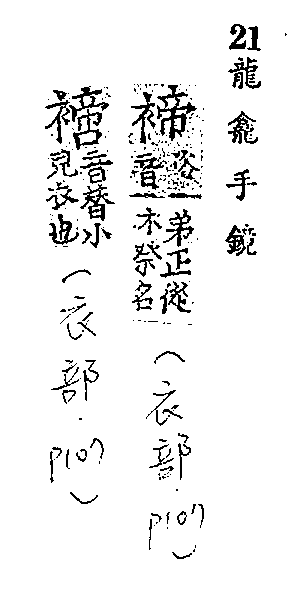 21龍龕手鏡
褅俗音弟正從示祭名(衣部.P107)
音替小兒衣也(衣部.P107)